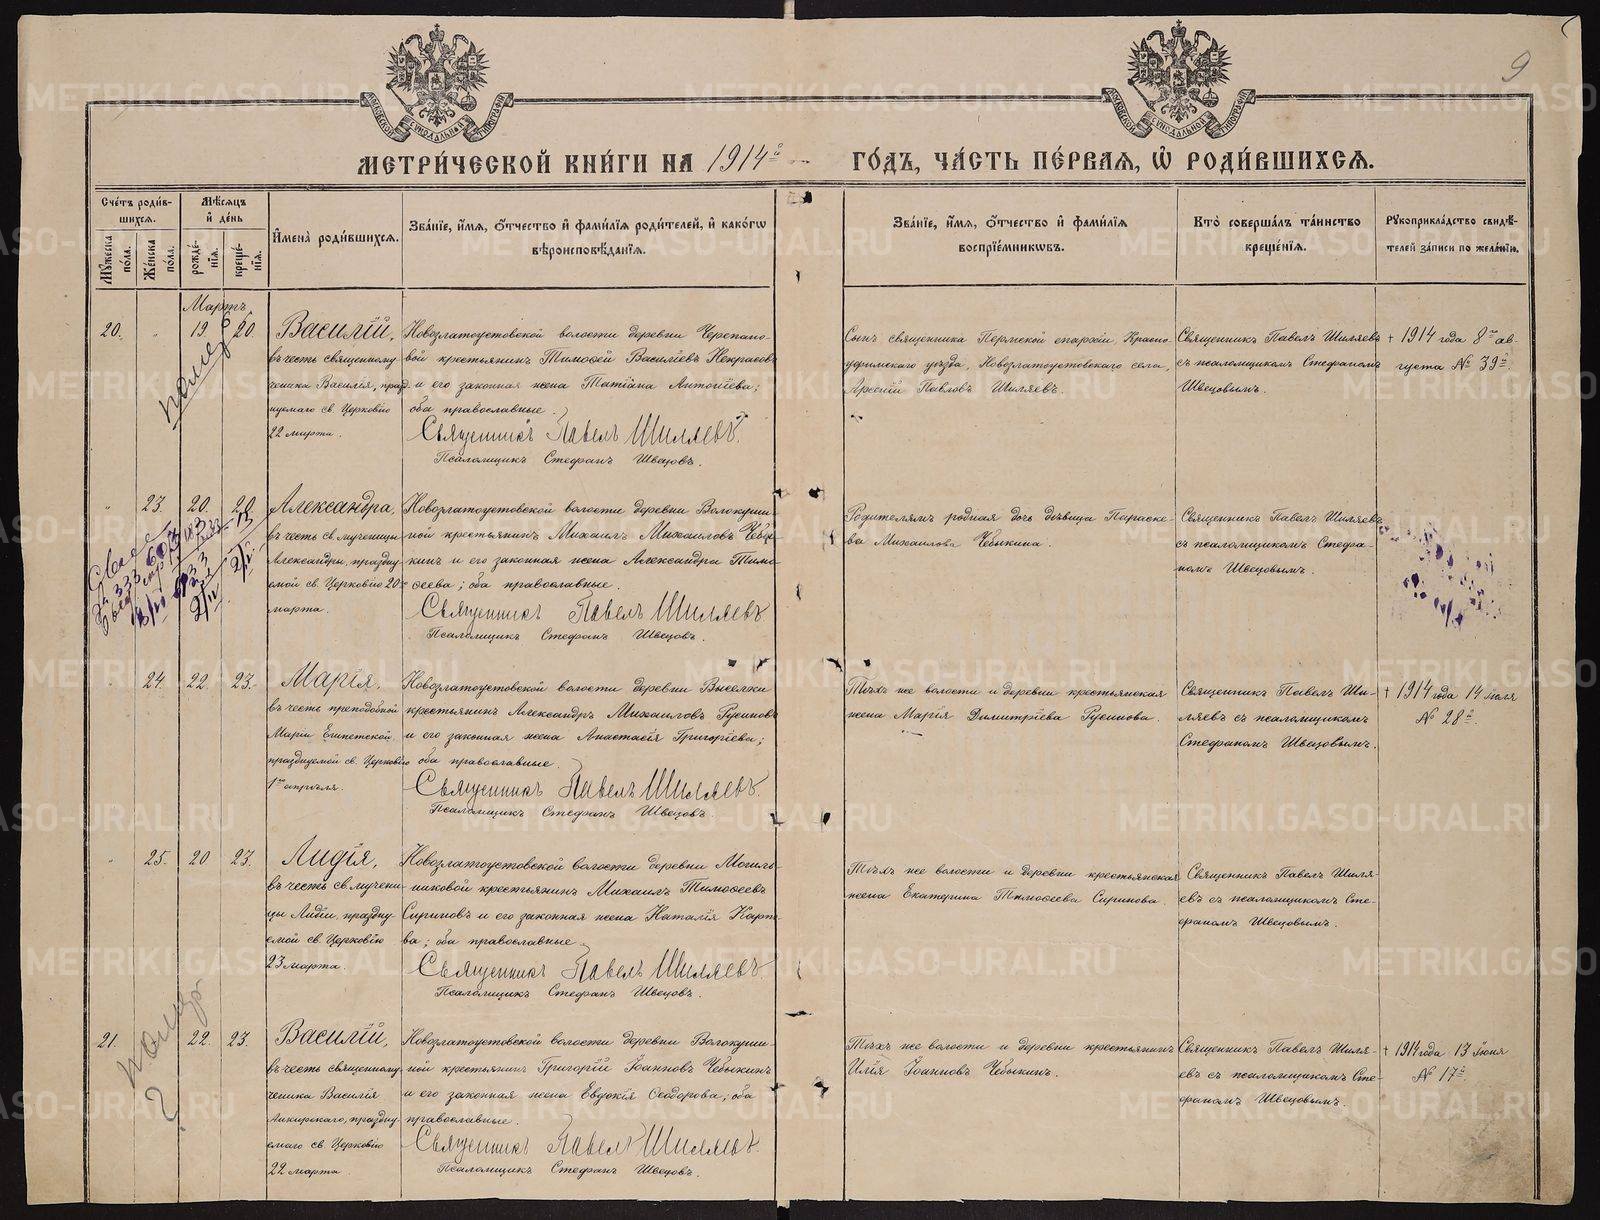 9
МОСКОВСКОЙ СѴНОДАЛЬНОЙ ТИПОГРАФІИ
МОСКОВСКОЙ СѴНОДАЛЬНОЙ ТИПОГРАФІИ
МЕТРИ́ЧЕСКОЙ КНИ́ГИ НА 1914й ГО́ДЪ, ЧА́СТЬ ПЕ́РВАЯ, Ѡ҆ РОДИ́ВШИХСѦ.
Сче́тъ роди́в-
шихсѧ.
Му́жеска по́ла.
Же́нска по́ла.
Мѣ́сѧцъ
и҆ де́нь
рожде́-
нїѧ.
креще́-
нїѧ.
И҆мена̀ роди́вшихсѧ.
Зва́нїе, и҆́мѧ, ѻ҆́тчество и҆ фами́лїѧ роди́телей, и҆ како́гѡ
вѣроисповѣ́данїѧ.
Зва́нїе, и҆́мѧ, ѻ҆́тчество и҆ фами́лїѧ
воспрїе́мникѡвъ.
Кто̀ соверша́лъ та́инство
креще́нїѧ.
Рꙋкоприкла́дство свидѣ́-
телей за́писи по жела́нїю.
Мартъ.
20. " 19 20.
помер
Василій,
въ честь священному-
ченика Василія, празд-
нуемаго св. Церковію
22 марта.
Новозлатоустовской волости деревни Черепано-
вой крестьянинъ Тимоѳей Василіевъ Некрасовъ
и его законная жена Татіана Антоніева;
оба православные.
Священникъ Павелъ Шиляевъ.
Псаломщикъ Стефанъ Швецовъ.
Сынъ священника Пермской епархіи, Красно-
уфимскаго уѣзда, Новозлатоустовскаго села,
Арсеній Павловъ Шиляевъ.
Священникъ Павелъ Шиляевъ
съ псаломщикомъ Стефаномъ
Швецовымъ.
† 1914 года 8го ав-
густа № 39й.
" 23. 20. 20.
Александра,
въ честь св. мученицы
Александры, праздну-
емой св. Церковію 20
марта.
Новозлатоустовской волости деревни Волокуши-
ной крестьянинъ Михаилъ Михаиловъ Чебы-
кинъ и его законная жена Александра Тимо-
ѳеева; оба православные.
Священникъ Павелъ Шиляевъ
Псаломщикъ Стефанъ Швецовъ.
Родителямъ родная дочь дѣвица Параске-
ва Михаилова Чебыкина.
Священникъ Павелъ Шиляевъ
съ псаломщикомъ Стефа-
номъ Швецовымъ.
" 24. 22. 23.
Марія,
въ честь преподобной
Маріи Египетской,
празднуемой св. Церковію
1го апрѣля.
Новозлатоустовской волости деревни Выселки
крестьянинъ Александръ Михаиловъ Русиновъ
и его законная жена Анастасія Григоріева;
оба православные.
Священникъ Павелъ Шиляевъ.
Псаломщикъ Стефанъ Швецовъ.
Тѣхъ же волости и деревни крестьянская
жена Марія Димитріева Русинова.
Священникъ Павелъ Ши-
ляевъ съ псаломщикомъ
Стефаномъ Швецовымъ.
† 1914 года 14 іюля
№ 28й.
" 25. 20 23.
Лидія,
въ честь св. мучени-
цы Лидіи, праздну-
емой св. Церковію
23 марта.
Новозлатоустовской волости деревни Могиль-
никовой крестьянинъ Михаилъ Тимоѳеевъ
Сириновъ и его законная жена Наталія Карпо-
ва; оба православные.
Священникъ Павелъ Шиляевъ.
Псаломщикъ Стефанъ Швецовъ.
Тѣхъ же волости и деревни крестьянская
жена Екатерина Тимоѳеева Сиринова.
Священникъ Павелъ Шиля-
евъ съ псаломщикомъ Сте-
фаномъ Швецовымъ.
21. 22. 23.
помер
?
Василій,
въ честь священному-
ченика Василія
Анкирскаго, праздну-
емаго св. Церковію
22 марта.
Новозлатоустовской волости деревни Волокуши-
ной крестьянинъ Григорій Іоанновъ Чебыкинъ
и его законная жена Евдокія Ѳеодорова; оба
православные.
Священникъ Павелъ Шиляевъ.
Псаломщикъ Стефанъ Швецовъ.
Тѣхъ же волости и деревни крестьянинъ
Илія Іоанновъ Чебыкинъ.
Священникъ Павелъ Шиля-
евъ съ псаломщикомъ Сте-
фаномъ Швецовымъ.
† 1914 года 13 іюня
№ 17й
METRIKI.GASO-URAL.RU